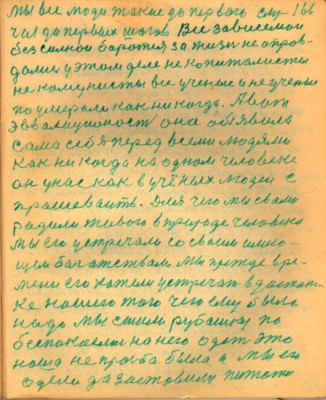 Мы все люди такие до первого слу- 166
чая до первых шагов Все зависемой
без силной боротся за жизн не опров-
дались у этом деле не копиталисты
не комунисты все ученые и не ученые
поумерали как ни когдь. А вот
эвволиционост она обявила
сама себя перед всеми людями
как ни когда на одном человеке
он у нас как в учёных людей с
прашевають. Для чего мы с вами
радили живого в природе человека
мы его устречали со своим имею-
щем багатством мы прежде вре-
мени его хотели устречать в достатке
ке нашего того чего ему было
надо мы сшили рубашку по
беспокоелись на него одет это
наша не прозба была а мы его
одели да заставили питатса